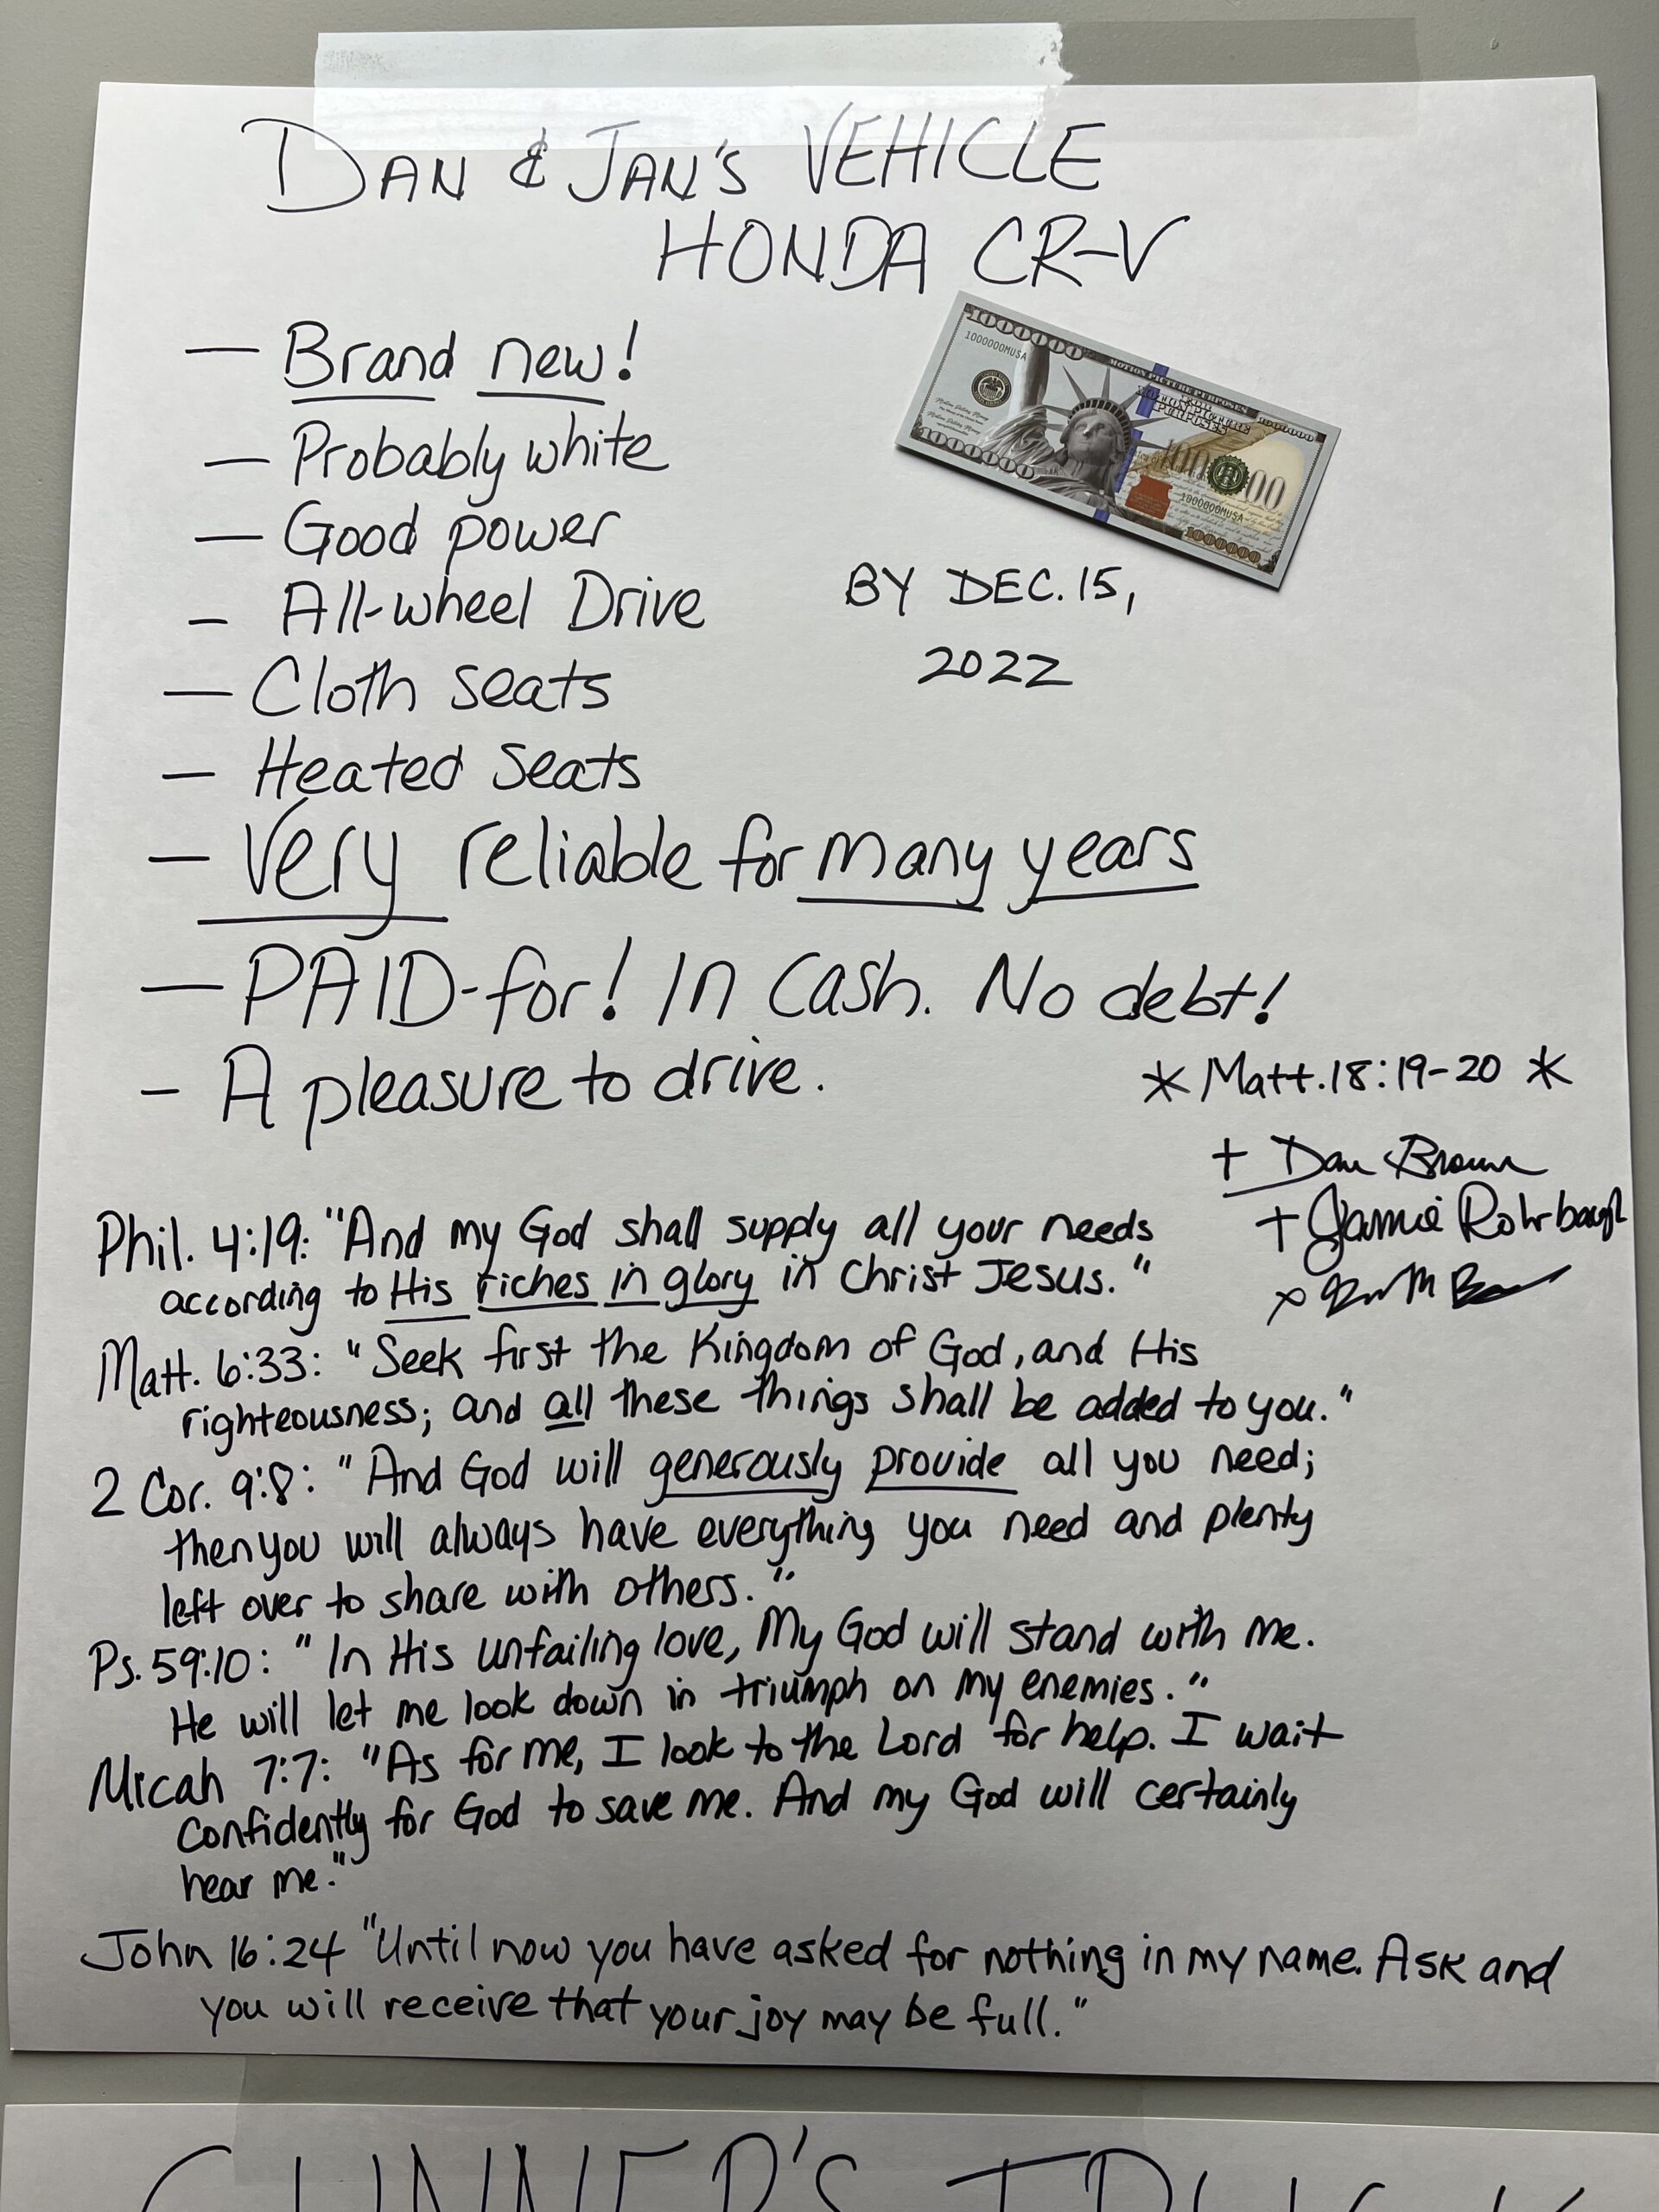 DAN & JAN'S VEHICLE
HONDA CR-V
— Brand new!
— Probably white
— Good power
– All-wheel Drive
— Cloth seats
— Heated Seats
— Very reliable for many years
— PAID-for! In Cash. No debt!
– A pleasure to drive.
1000000
1000000MUSA
MOTION PICTURE PURPOSES
MOTION PICTURE
PURPOSES
1000000
1000000MUSA
1000000
1000000
BY DEC. 15,
2022
* Matt. 18:19-20 *
+ Dan Brown
+ Jamie Rohrbaugh
Phil. 4:19: "And my God shall supply all your needs
according to His riches in glory in Christ Jesus."
Matt. 6:33: "Seek first the Kingdom of God, and His
righteousness; and all these things shall be added to you."
2 Cor. 9:8: "And God will generously provide all you need;
then you will always have everything you need and plenty
left over to share with others."
Ps. 59:10: "In His unfailing love, My God will stand with me.
He will let me look down in triumph on my enemies."
Micah 7:7: "As for me, I look to the Lord for help. I wait
Confidently for God to save me. And my God will certainly
hear me."
John 16:24 "Until now you have asked for nothing in my name. Ask and
you will receive that your joy may be full."